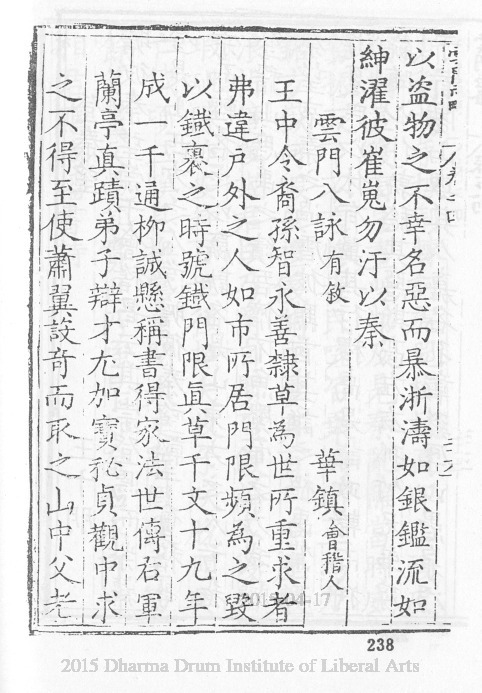 以盗物之不幸名惡而暴浙濤如銀鑑流如
紳濯彼崔嵬勿汙以秦
雲門八詠有敘 華鎮會稽人
王中令裔孫智永善隸草為世所重求者
弗違户外之人如市所居門限頻為之毀
以鐵裹之時號鐵門限真草千文十九年
成一千通柳誠懸稱書得家法世傳右軍
蘭亭真蹟弟子辯才尤加寶祕貞觀中求
之不得至使蕭翼設奇而取之山中父老
2015-04-17
238
2015 Dharma Drum Institute of Liberal Arts